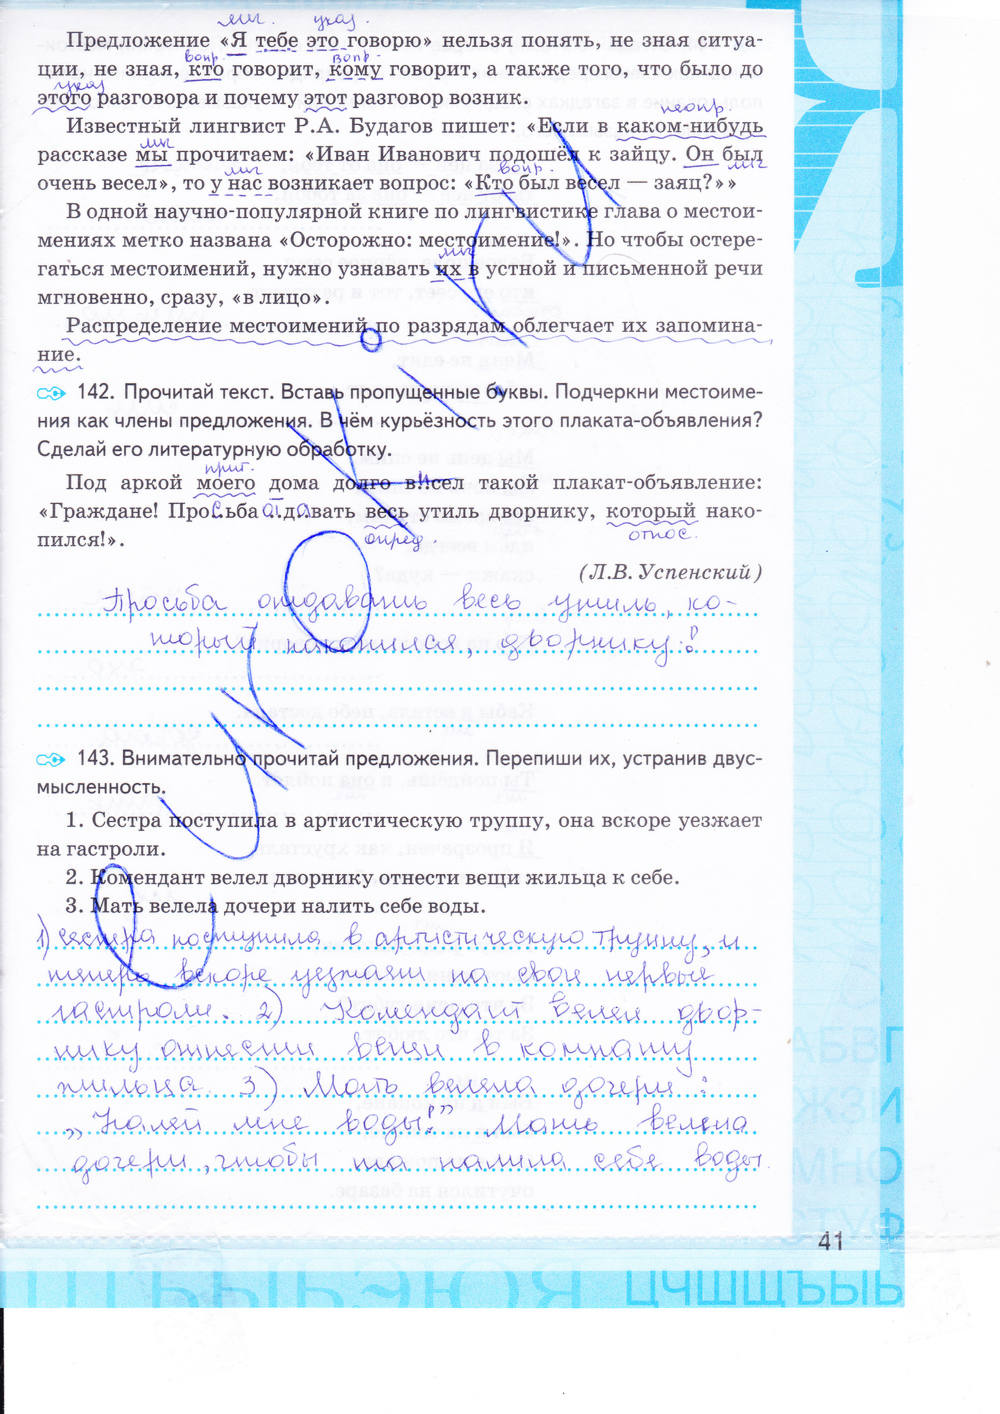 лич. указ.
Предложение «Я тебе это говорю» нельзя понять, не зная ситуа-
вопр. вопр.
ции, не зная, кто говорит, кому говорит, а также того, что было до
указ
этого разговора и почему этот разговор возник.
неопр.
Известный лингвист Р.А. Будагов пишет: «Если в каком-нибудь
лич
рассказе мы прочитаем: «Иван Иванович подошёл к зайцу. Он был
лич вопр. лич
очень весел», то у нас возникает вопрос: «Кто был весел — заяц?»»
В одной научно-популярной книге по лингвистике глава о местои-
мениях метко названа «Осторожно: местоимение!». Но чтобы остере-
лич
гаться местоимений, нужно узнавать их в устной и письменной речи
мгновенно, сразу, «в лицо».
Распределение местоимений по разрядам облегчает их запомина-
ние.
142. Прочитай текст. Вставь пропущенные буквы. Подчеркни местоиме-
ния как члены предложения. В чём курьёзность этого плаката-объявления?
Сделай его литературную обработку.
прит.
Под аркой моего дома долго висел такой плакат-объявление:
«Граждане! Просьба отдавать весь утиль дворнику, который нако-
опред. относ.
пился!».
(Л.В. Успенский)
Просьба отдавать весь утиль, ко-
торый накопился, дворнику!
143. Внимательно прочитай предложения. Перепиши их, устранив двус-
мысленность.
1. Сестра поступила в артистическую труппу, она вскоре уезжает
на гастроли.
2. Комендант велел дворнику отнести вещи жильца к себе.
3. Мать велела дочери налить себе воды.
1) Сестра поступила в артистическую труппу, и
теперь вскоре уезжает на свои первые
гастроли. 2) Комендант велел двор-
нику отнести вещи в комнату
жильца. 3) Мать велела дочери:
„Налей мне воды!” Мать велела
дочери, чтобы та налила себе воды.
41
ЦЧШЩЪЫЬ